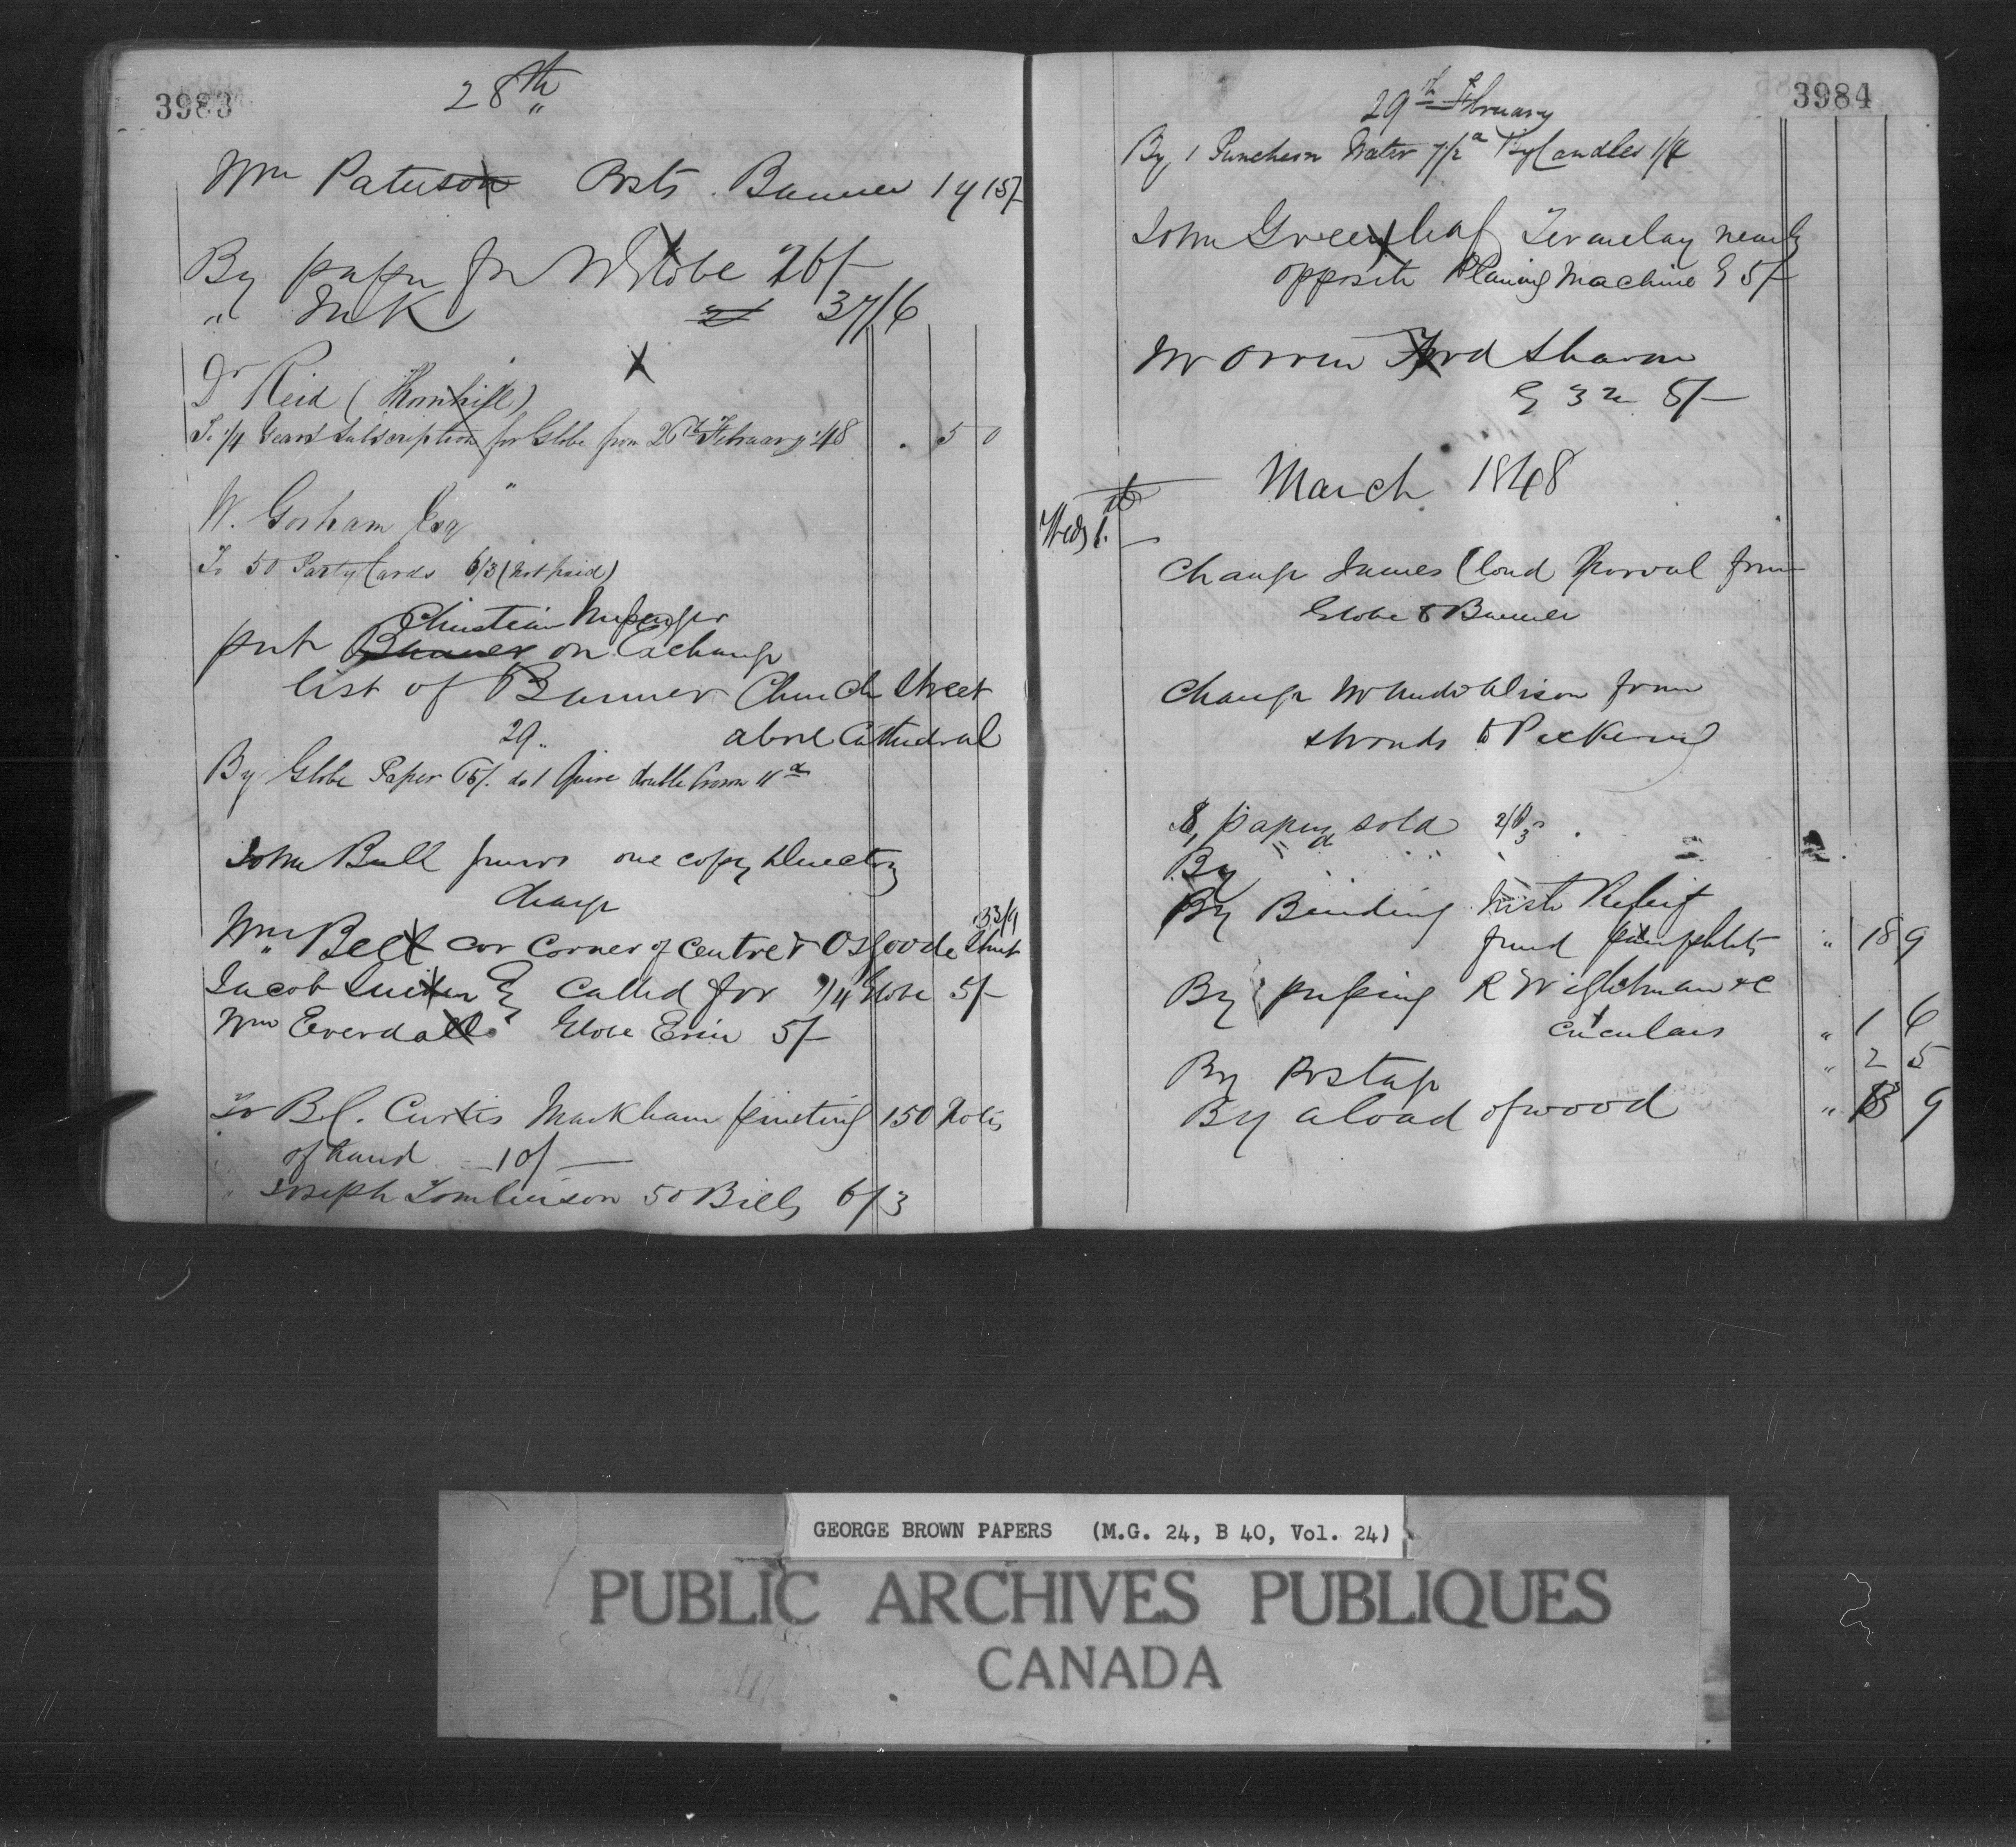 3983
28th
Wm Paterson Posts. Banner 1 y 15/-
By paper for W Globe 26/-
" Ink 37/6
Dr Reid (Thornhill)
To 1/4 Years Subscription for Globe from 26th February '48 . 5 0
W. Gorham Esq
To 50 Party Cards 6/3 (not paid)
Christian Messenger
put Banner on Exchange
list of Banner Church Street
29 above Cathedral
By Globe Paper 65/. do 1 Quire double Crown 11d
John Bull one copy Directory
charge
Wm Bell cor corner of Centre & Osgoode Street 33/9
Jacob G called for 1/4 Globe 5/-
Wm Everdall Globe Erin 5/-
To B.C. Curtis Markham printing 150 Notes
of hand 10/-
" Joseph Tomlinson 50 Bills 6/3
3984
29th February
By 1 Puncheon Water 7 1/2d By Candles 1/4
John Greenleaf Teraulay nearly
opposite Planing Machine G 5/-
Mr Orrin Ford Sharon
G 3 m 5/-
March 1848
Weds 1st
Change James Cloud Norval from
Globe to Banner
Change Mr Andw Alison from
Stronds to Pickering
8 papers sold
By
By Binding Irish Relief
fund pamphlets " 18 9
By pressing R Wightman & C
circulars " 1 6
By Postage " 2 5
By a load of wood " 13 9
GEORGE BROWN PAPERS (M.G. 24, B 40, Vol. 24)
PUBLIC ARCHIVES PUBLIQUES
CANADA